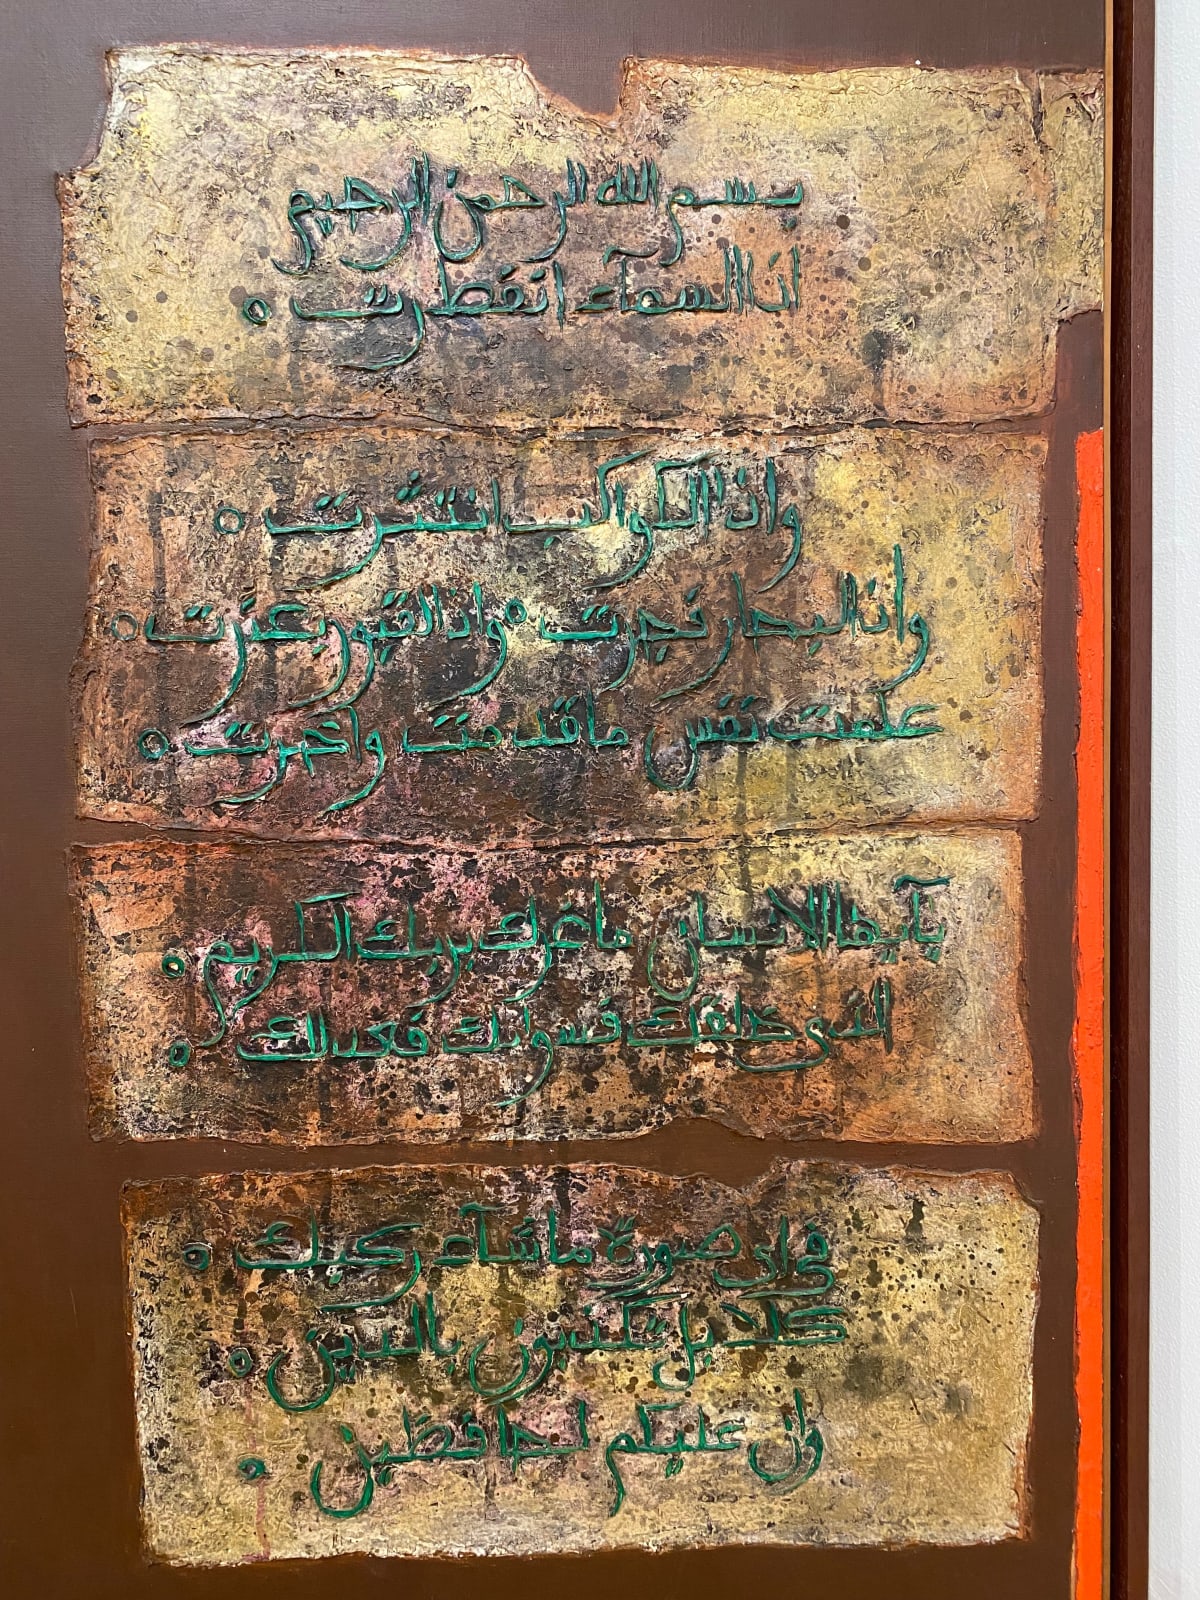 بسم الله الرحمن الرحيم
اذا السمآء انفطرت ه
واذا الكواكب انتثرت ه
واذا البحار فجرت ه واذا القبور بعثرت ه
علمت نفس ما قدمت واخرت ه
يآيها الانسان ما غرك بربك الكريم ه
الذى خلقك فسوىك فعدلك ه
فى اى صورة ما شآء ركبك ه
كلا بل تكذبون بالدين ه
وان عليكم لحافظين ه